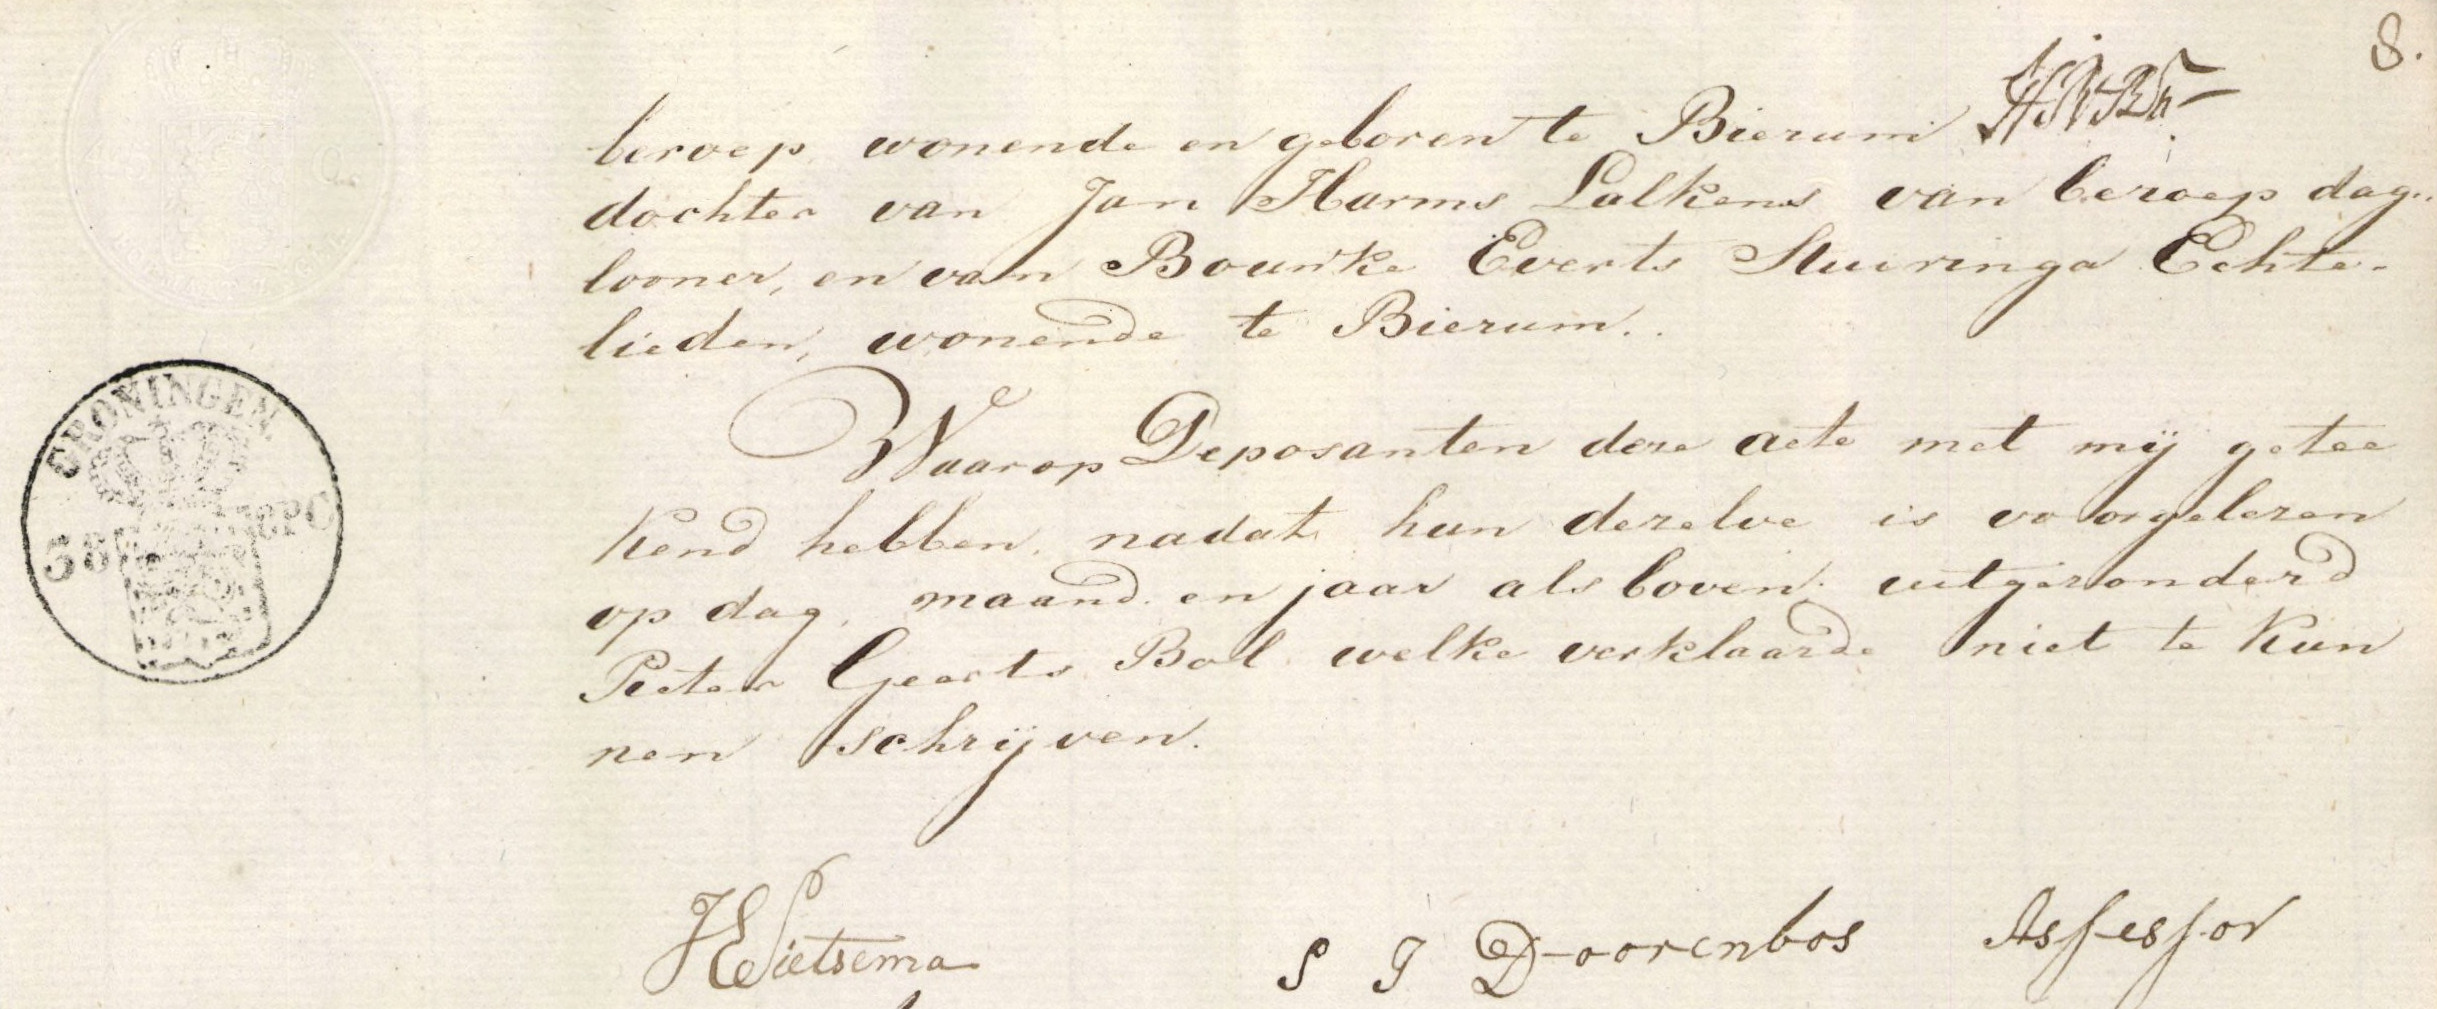 8.
beroep wonende en geboren te Bierum
dochter van Jan Harms Lalkens van beroep dag..
looner, en van Bouwke Everts Stuiringa Echte-
lieden, wonende te Bierum..
Waarop Deposanten deze acte met mij getee
kend hebben, nadat hun dezelve is voorgelezen
op dag, maand en jaar als boven. uitgezonderd
Pieter Geerts Bol welke verklaarde niet te kun
nen schrijven.
GRONINGEN.
38 OPC
HSietsema
S J Doorenbos Assessor